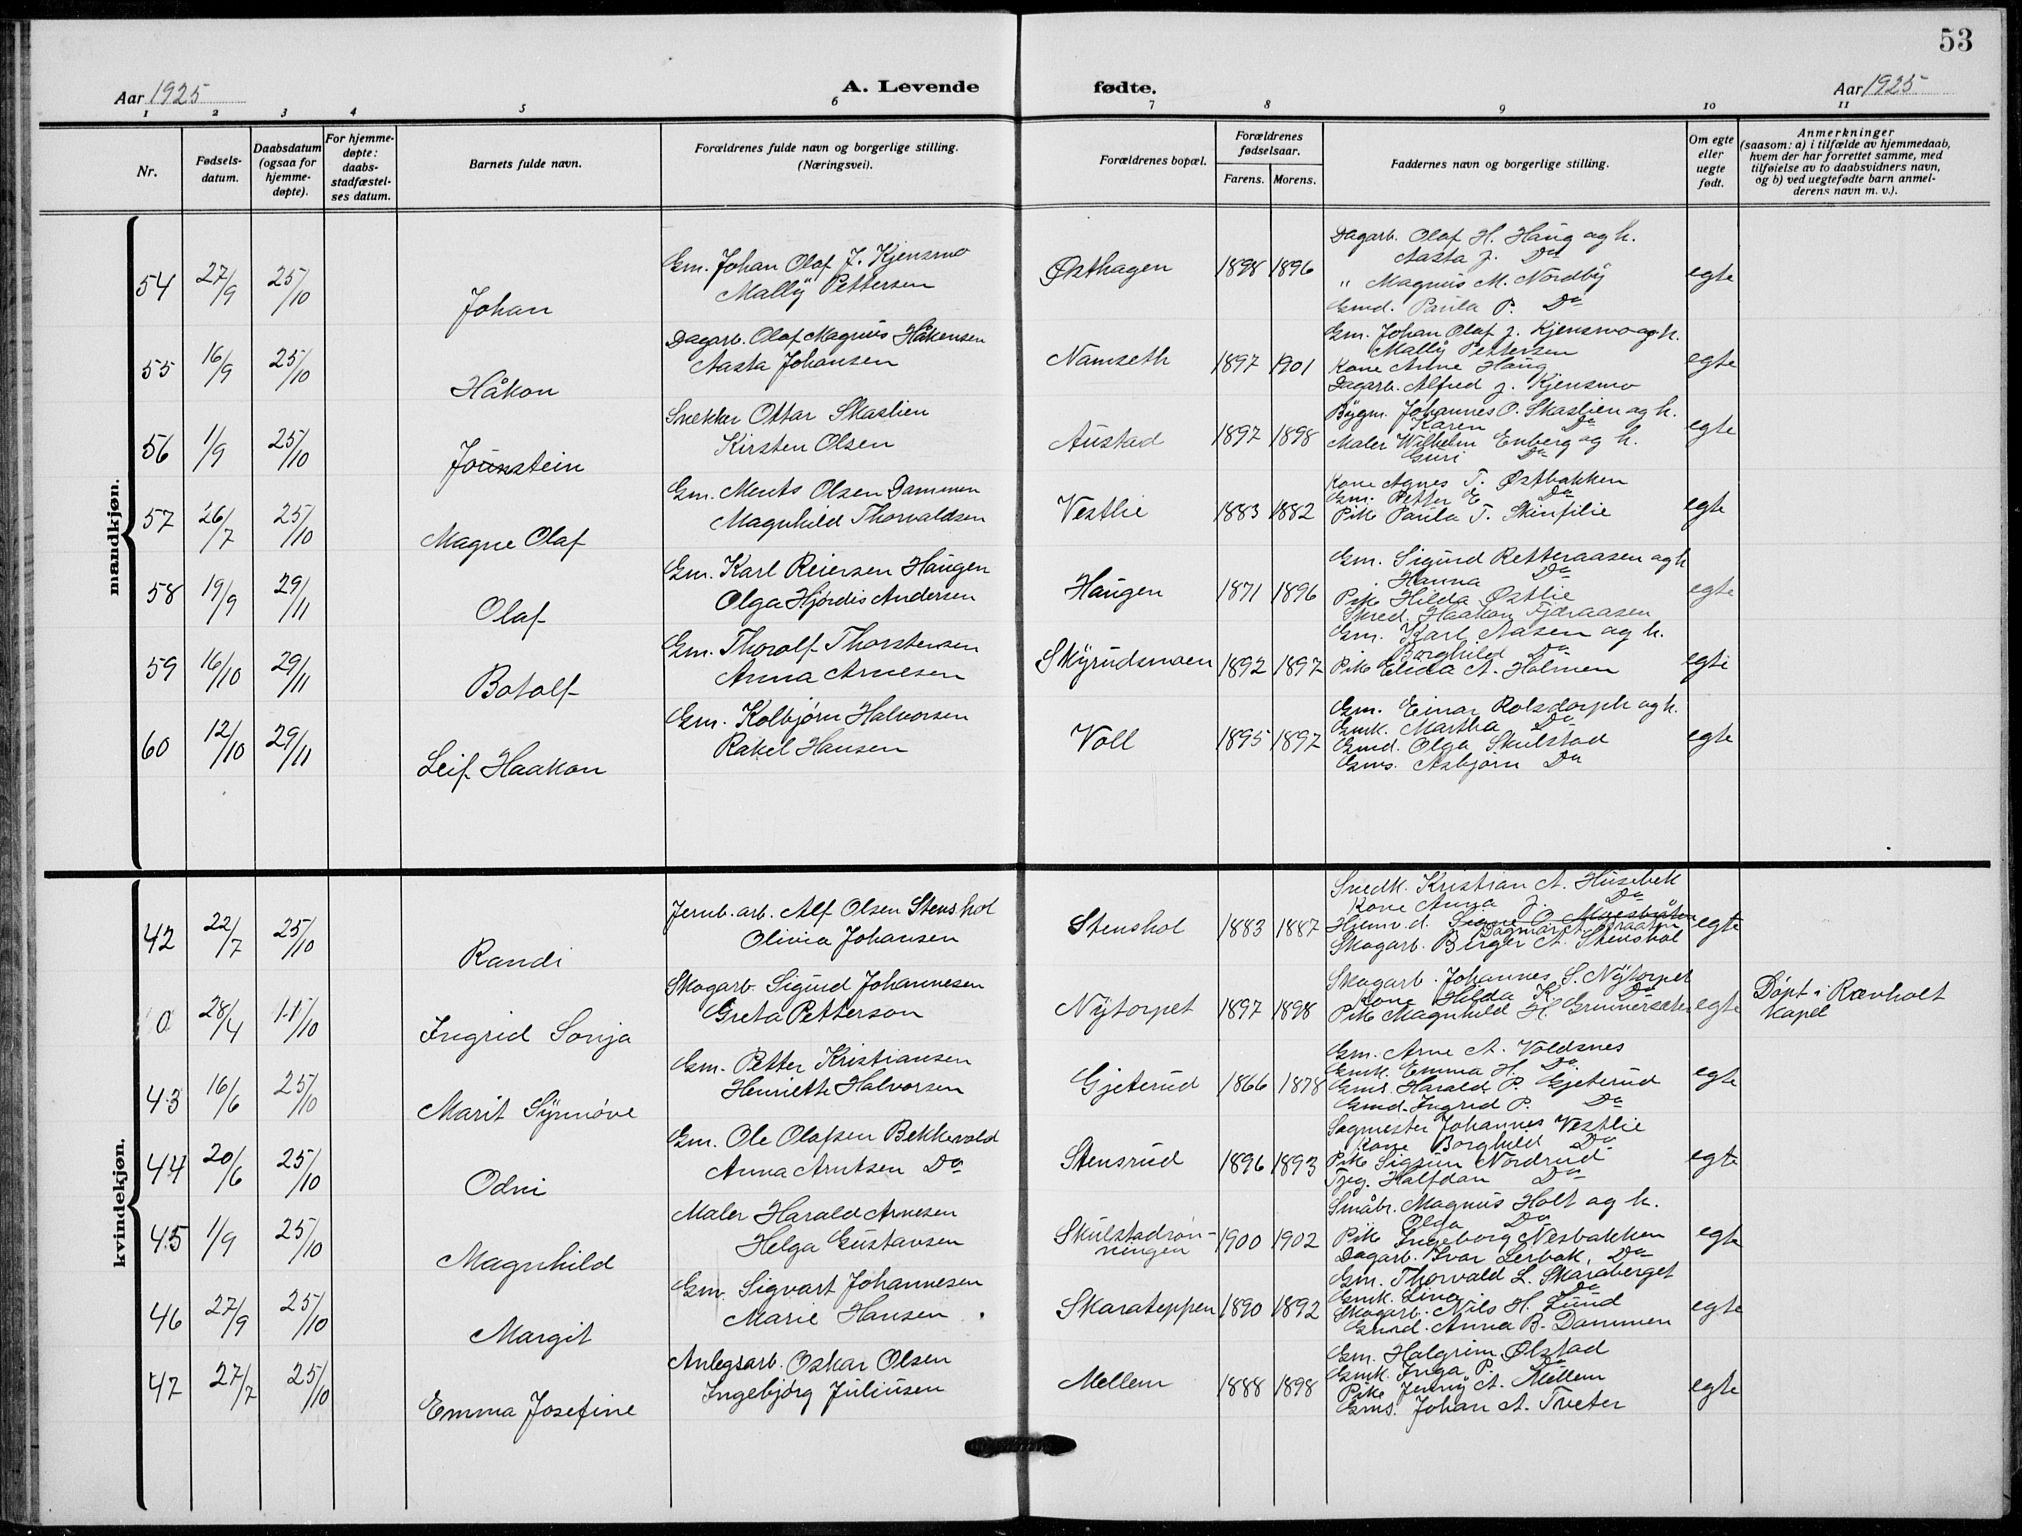 53
Aar 1925
A. Levende
fødte.
Aar 1925
1 2 3 4 5 6 7 8 9 10 11
Nr.
Fødsels-
datum.
Daabsdatum
(ogsaa for
hjemme-
døpte).
For hjemme-
døpte:
daabs-
stadfæstel-
ses datum.
Barnets fulde navn.
Forældrenes fulde navn og borgerlige stilling.
(Næringsvei).
Forældrenes bopæl.
Forældrenes
fødselsaar.
Farens. Morens.
Faddernes navn og borgerlige stilling.
Om egte
eller
uegte
født.
Anmerkninger
(saasom: a) i tilfælde av hjemmedaab,
hvem der har forrettet samme, med
tilføielse av to daabsvidners navn,
og b) ved uegtefødte barn anmel-
derens navn m. v.).
mandkjøn.
54 27/9 25/10
Johan
Gm. Johan Olaf J. Kjensmo
Mally Pettersen
Østhagen 1898 1896
Dagarb. Olaf H. Haug og h.
Aasta J. Do
" Magnus M. Nordby
Gmd. Paula P. Do
egte
55 16/9 25/10
Håkon
Dagarb. Olaf Magnus Håkensen
Aasta Johansen
Namseth 1897 1901
Gm. Johan Olaf J. Kjensmo og h.
Mally Pettersen
Kone Anne Haug
Dagarb. Alfred J. Kjensmo
egte
56 1/9 25/10
Jounstein
Snekker Ottar Skaslien
Kirsten Olsen
Austad 1897 1898
Bygm. Johannes O. Skaslien og h.
Karen Do
Maler Wilhelm Enberg og h.
Guri Do
egte
57 26/7 25/10
Magne Olaf
Gm. Ments Olsen Dammen
Magnhild Thorvaldsen
Vestlie 1883 1882
Kone Agnes T. Østbakken
Gm. Petter E. Do
Pike Paula T. Skinfilie
egte
58 19/9 29/11
Olaf
Gm. Karl Reiersen Haugen
Olga Hjørdis Andersen
Haugen 1871 1896
Gm. Sigurd Retteraasen og h
Hanna Do
Pike Hilda Østlie
Skred. Haakon Fjæraasen
egte
59 16/10 29/11
Botolf
Gm. Thorolf Thorstensen
Anna Arnesen
Skyrudsmoen 1892 1897
Gm. Karl Aasen og h.
Borghild Do
Pike Elida A. Holmen
egte
60 12/10 29/11
Leif Haakon
Gm. Kolbjørn Halvorsen
Rakel Hansen
Voll 1895 1897
Gm. Einar Rolsdorph og h.
Gmk. Martha Do
Gmd. Olga Skulstad
Gms. Asbjørn Do
egte
kvindekjøn.
42 22/7 25/10
Randi
Jernb. arb. Alf Olsen Stenshol
Olivia Johansen
Stenshol 1883 1887
Snedk. Kristian A. Husebek
Kone Anna J. Do
Husmv. d. Signe O.
Dagmar A.
Skogarb. Birger A. Stenshol
egte
0 28/4 11/10
Ingrid Sonja
Skogarb. Sigurd Johannesen
Greta Petterson
Nytorpet 1897 1898
Skogarb. Johannes S. Nytorpet
Kone Hilda K. Do
Pike Magnhild H. Grinnersæter
egte
Døpt i Ravnholt
Kapel
43 16/6 25/10
Marit Synnøve
Gm. Petter Kristiansen
Henriette Halvorsen
Gjeterud 1866 1878
Gm. Arne A. Voldsnes
Gmk. Emma H. Do.
Gms. Harald P. Gjeterud
Gmd. Ingrid P. Do
egte
44 20/6 25/10
Odni
Gm. Ole Olafsen Bekkevold
Anna Arntsen Do
Stensrud 1896 1893
Sagmester Johannes Vestlie
Kone Borghild Do
Pike Sigrun Nordrud
Tjeg. Halfdan Do
egte
45 1/9 25/10
Magnhild
Maler Harald Arnesen
Helga Gustavsen
Skulstadrøn-
ningen 1900 1902
Småbr. Magnus Holt og h.
Olga Do
Pike Ingeborg Nesbakken
Dagarb. Ivar Lerbak, Do
egte
46 27/9 25/10
Margit
Gm. Sigvart Johannesen
Marie Hansen
Skarateppen 1890 1892
Gm. Thorvald L. Skaraberget
Gmk. Lina Do
Skogarb. Nils H. Lund
Gmd. Anna B. Dammen
egte
47 27/7 25/10
Emma Josefine
Anlegsarb. Oskar Olsen
Ingebjørg Juliusen
Mellem 1888 1898
Gm. Halgrim Ølstad
Gmk. Inga P. Do
Pike Jenny A. Mellem
Gms. Johan A. Tveter
egte